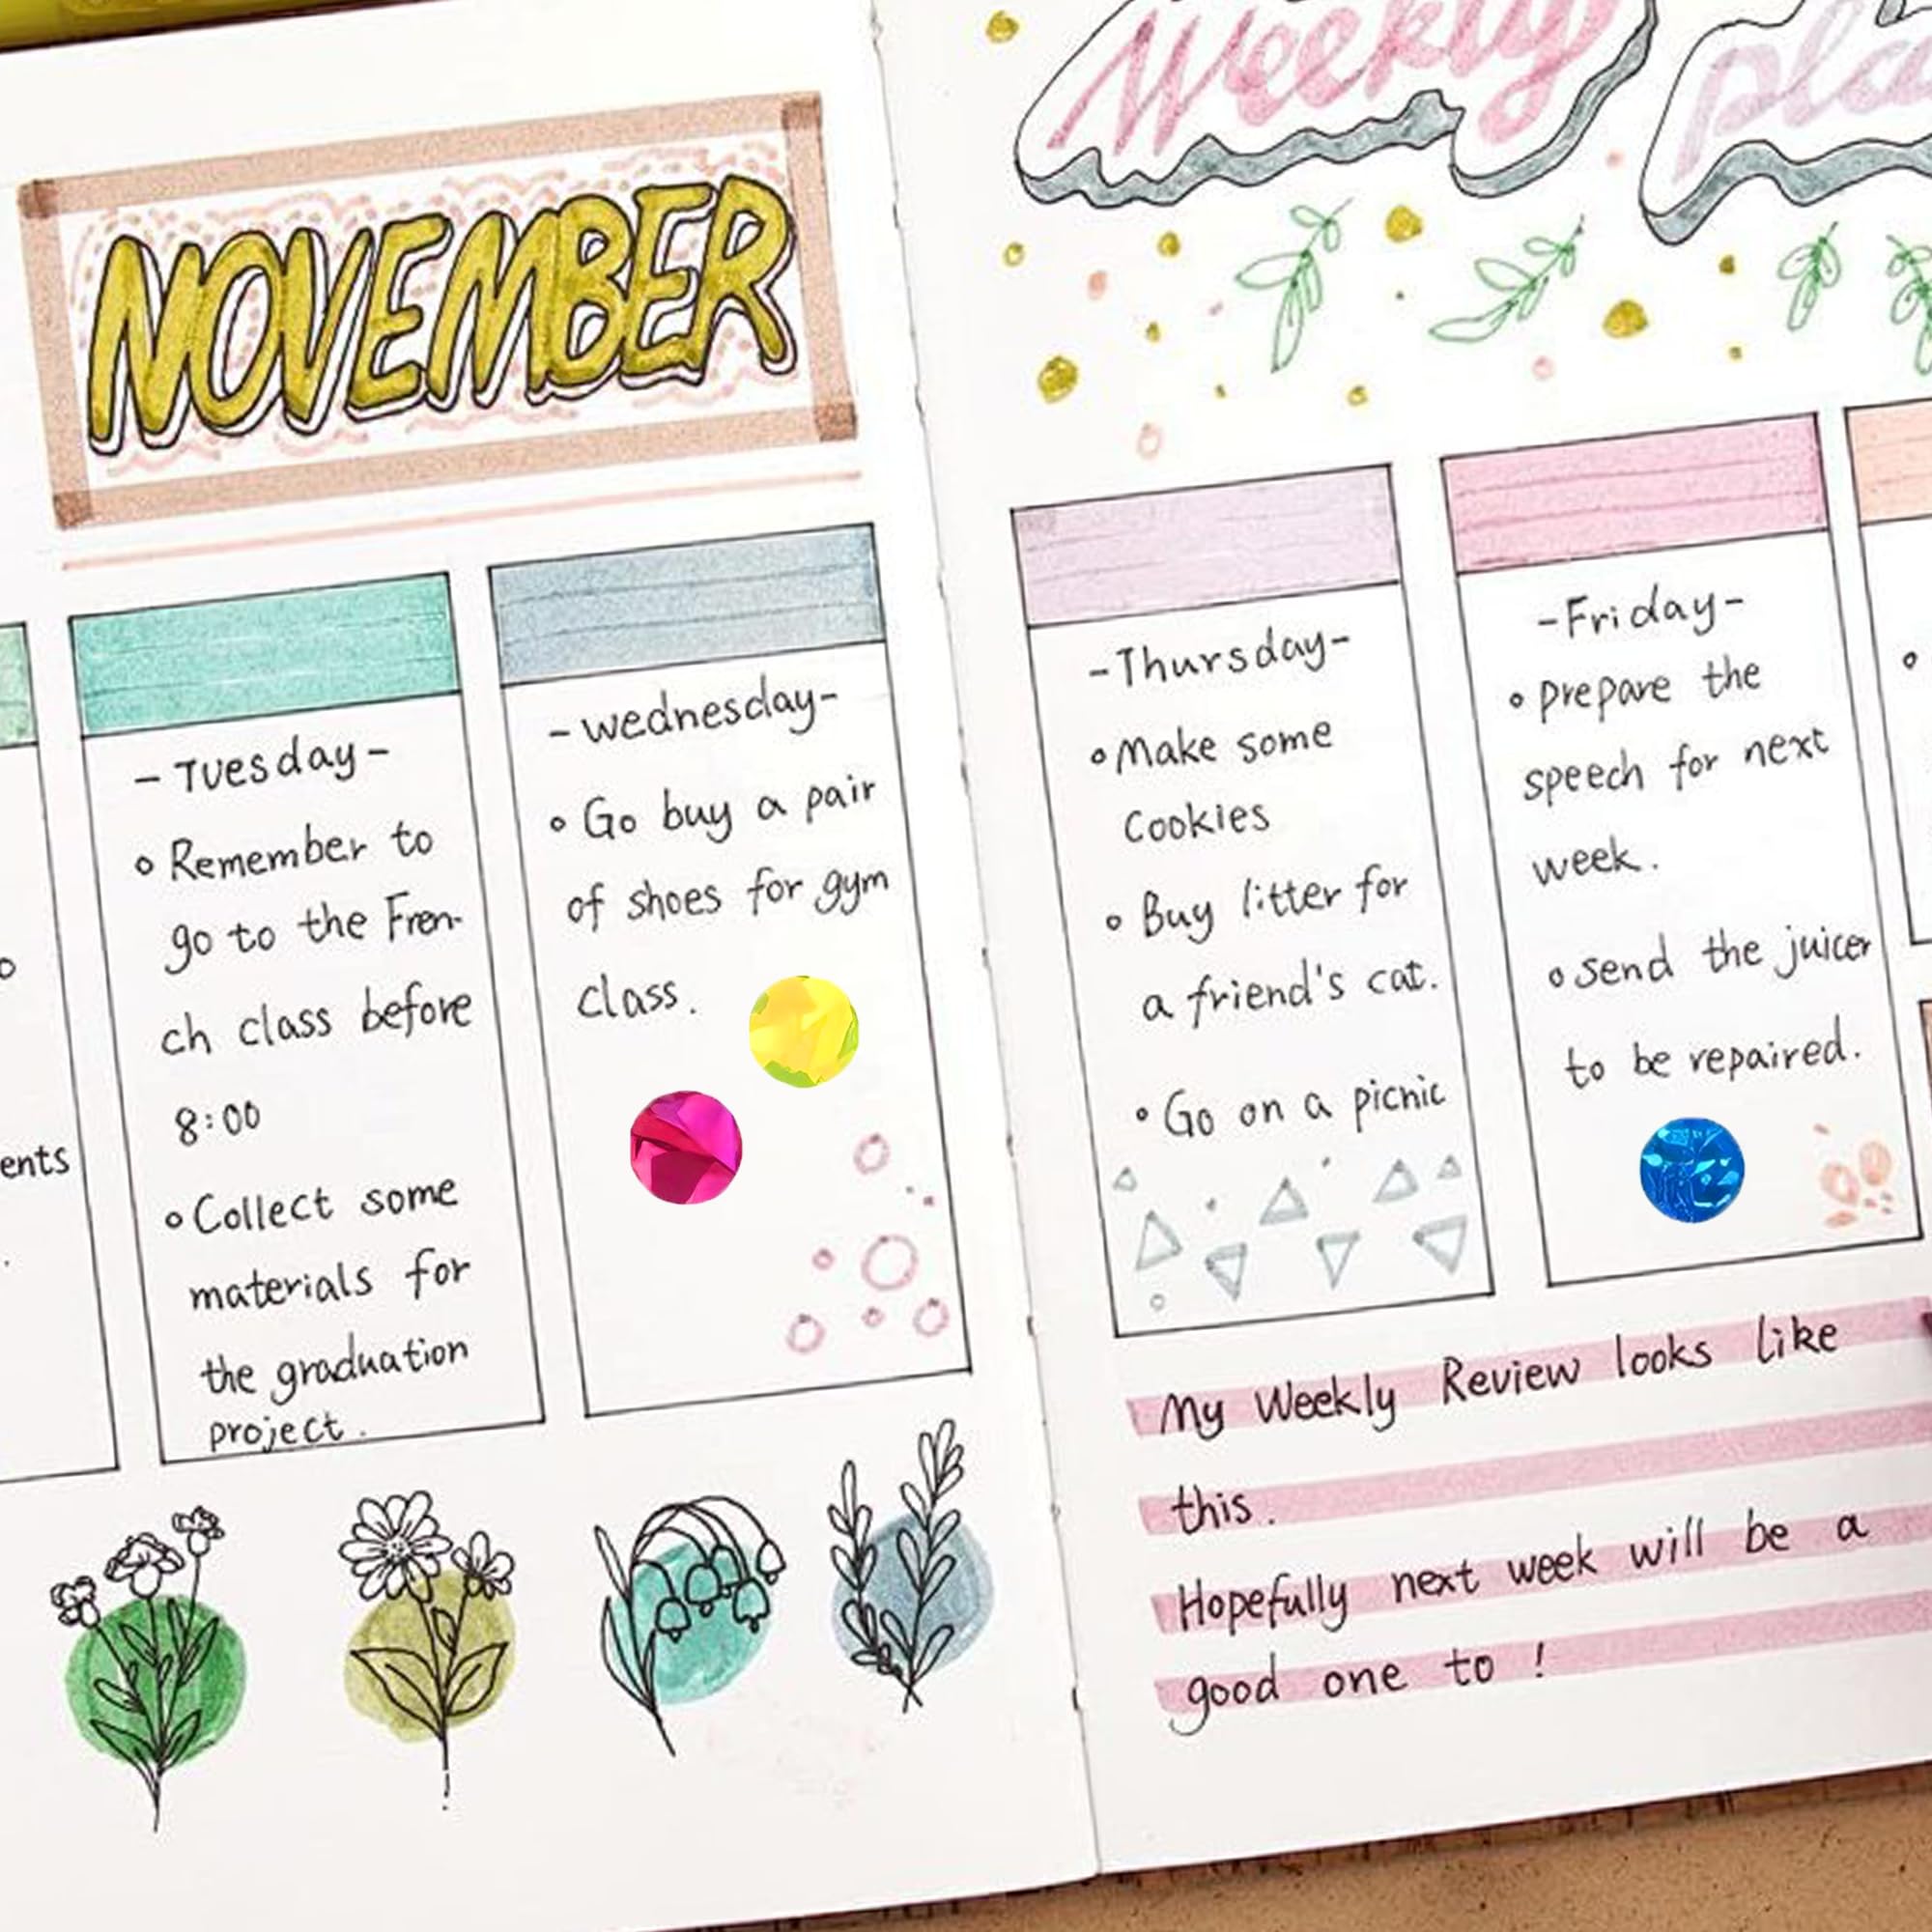 NOVEMBER
ents
-Tuesday-
Remember to
go to the Fren-
ch class before
8:00
Collect some
materials for
the graduation
project.
-wednesday-
Go buy a pair
of shoes for gym
class.
Weekly
-Thursday-
Make some
Cookies
Buy litter for
a friend's cat.
Go on a picnic
-Friday-
prepare the
speech for next
week.
send the juicer
to be repaired.
My Weekly Review looks like
this.
Hopefully next week will be a
good one to !